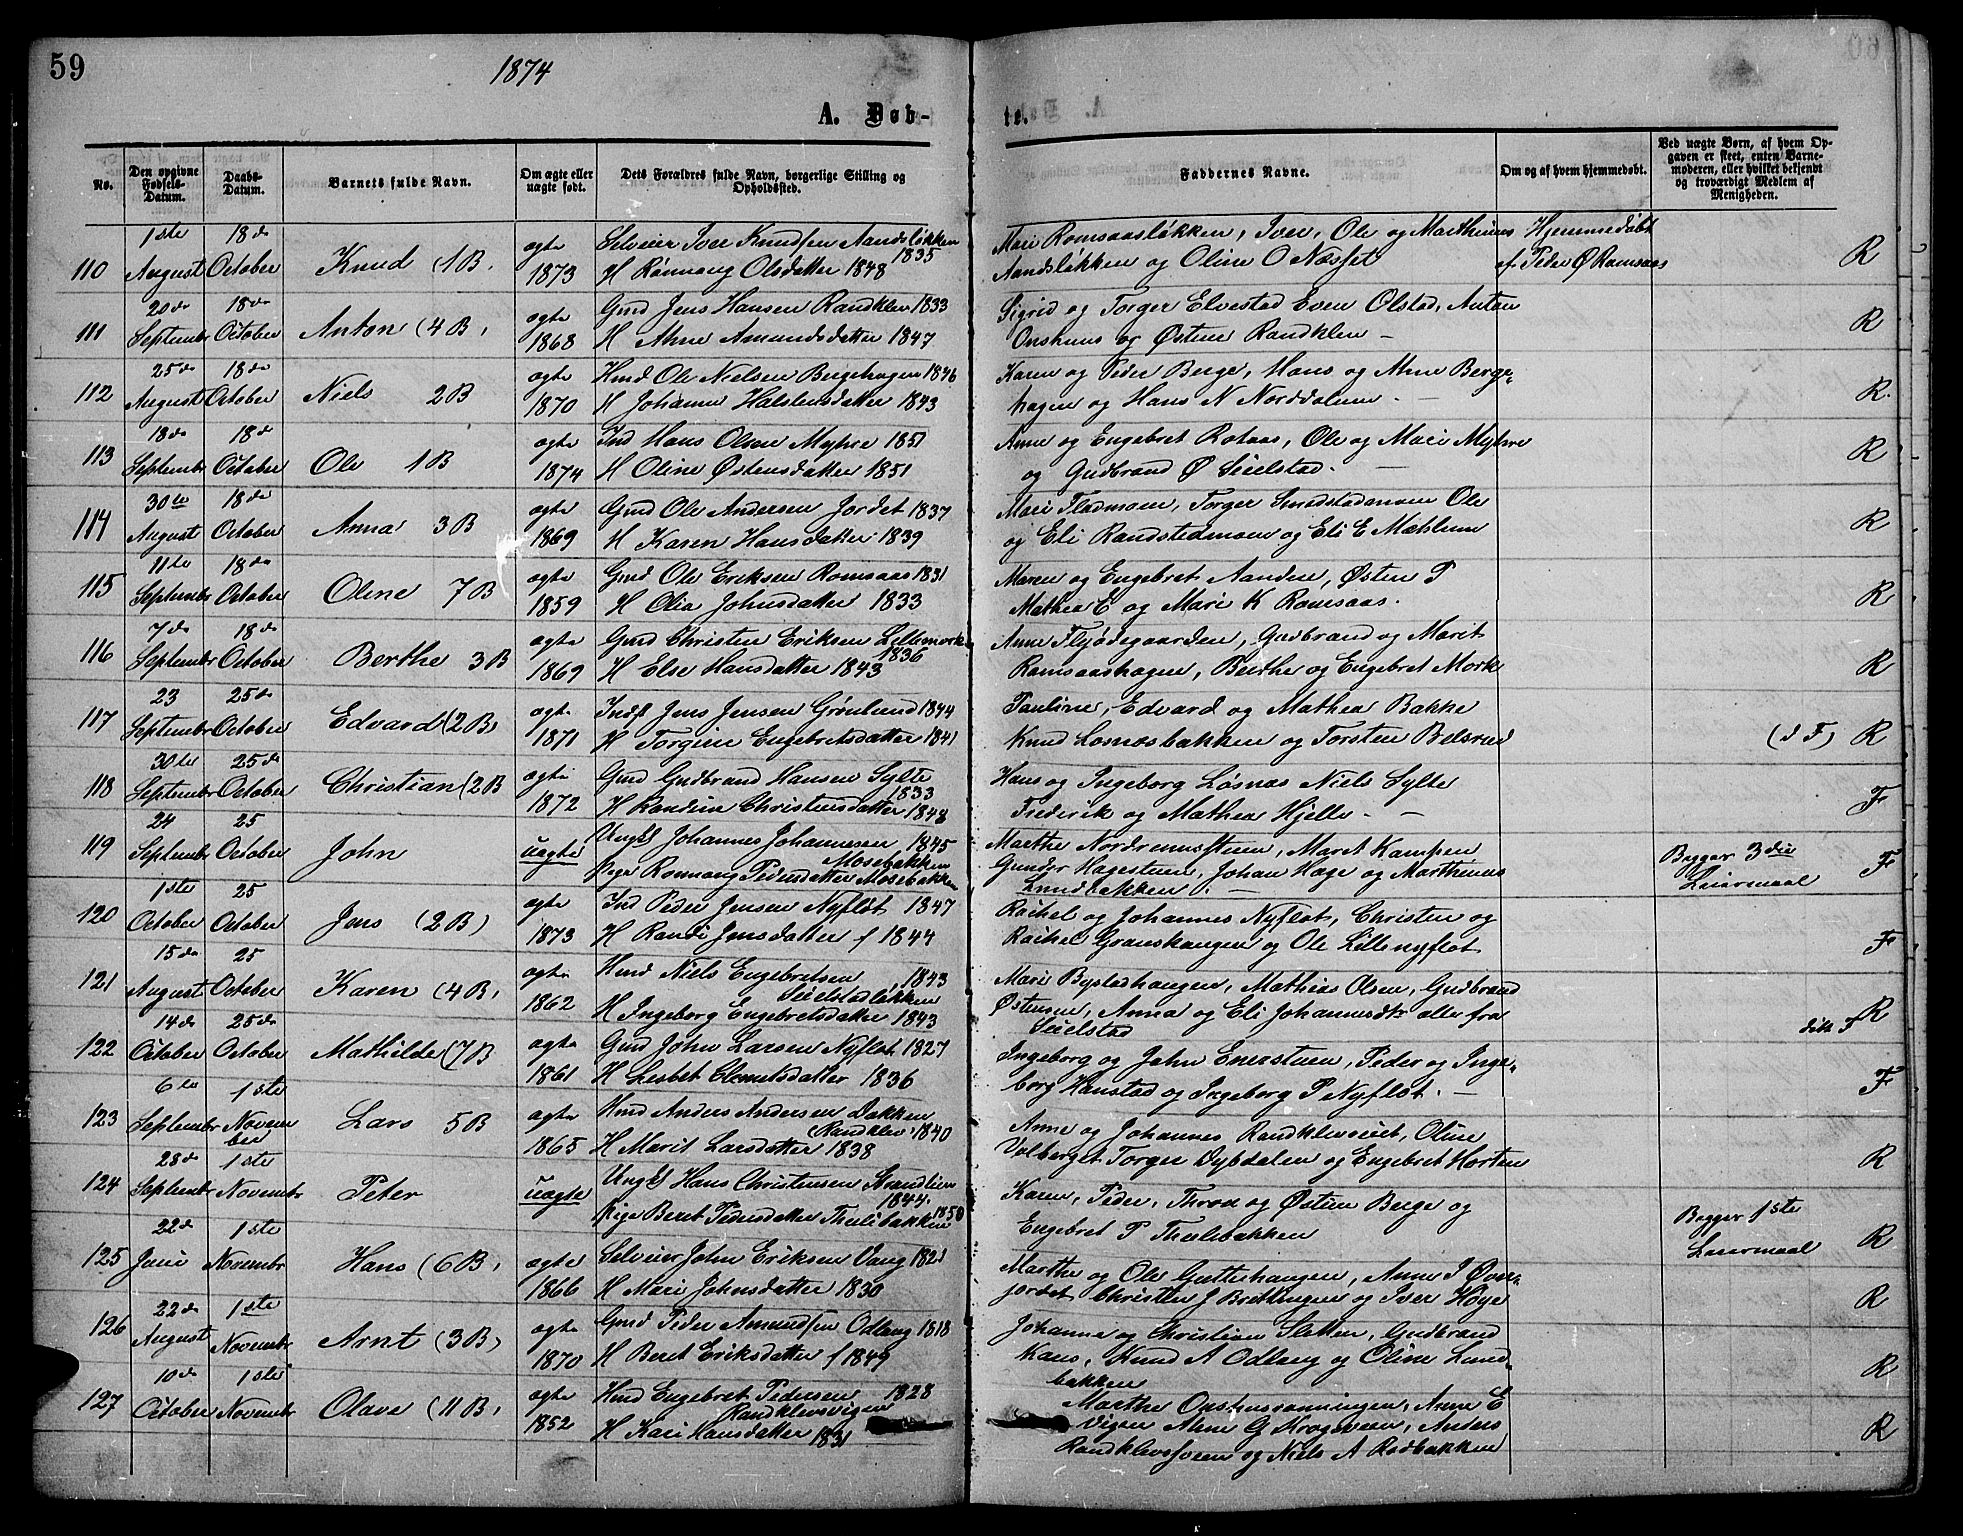 59
1874
A. Døb-
te.
No.
Den opgivne Fødsels-Datum.
Daabs-Datum.
Barnets fulde Navn.
Om ægte eller uægte født.
Dets Forældres fulde Navn, borgerlige Stilling og Opholdssted.
Faddernes Navne.
Om og af hvem hjemmedøbt.
Ved uægte Børn, af hvem Opgaven er skeet, enten Barnemoderen, eller hvilket bekjendt og troværdigt Medlem af Menigheden.
110 1ste August 18de October Knud (1B. ægte 1873
Selveier Iver Knudsen Aandsløkken 1835
H Rønnaug Olsdatter 1848
Mari Romsaasløkken, Iver, Ole og Marthinus
Aandsløkken og Oline O Næsset
Hjemmedøbt
af Peder Ø Romsaas
R
111 20de September 18de October Anton (4B. ægte 1868
Gmd Jens Hansen Randklev 1833
H Anne Amundsdatter 1847
Sigrid og Torger Elvestad Even Olstad, Anton
Onshuus og Østen Randklev
R
112 25de August 18de October Niels 2B ægte 1870
Hmd Ole Nielsen Bergehagen 1846
H Johanne Halstensdatter 1843
Karen og Peder Berge, Hans og Anne Berge-
hagen og Hans N Norddalen
R.
113 18de September 18de October Ole 1B ægte 1874
Ind Hans Olsen Myhre 1851
H Oline Østensdatter 1851
Anne og Engebret Rolaas, Ole og Mari Myhre
og Gudbrand Ø Seielstad.
R
114 30te August 18de October Anna 3B ægte 1869
Gmd Ole Andersen Jordet 1837
H Karen Hansdatter 1839
Mari Fladmoen, Torger Smedstadmoen Ole
og Eli Randstedmoen og Eli E Mæhlum
R
115 11te September 18de October Oline 7B ægte 1859
Gmd Ole Eriksen Romsaas 1831
H Olia Johnsdatter 1833
Maren og Engebret Aanden, Østen P
Mathea E og Mari K Romsaas.
R
116 7de September 18de October Berthe 3B ægte 1869
Gmd Christen Eriksen Lillemork 1836
H Else Hansdatter 1843
Anne Fløjdegaarden, Gudbrand og Marit
Romsaashagen, Berthe og Engebret Mork
R
117 23 September 25de October Edvard (2B) ægte 1871
Inds Jens Jensen Grønlund 1844
H Torgine Engebretsdatter 1841
Pauline, Edvard og Mathea Bakke
Knud Losnesbakken og Torsten Belsved
(d F) R
118 30te September 25de October Christian (2B ægte 1872
Gmd Gudbrand Hansen Sylte 1833
H Randine Christensdatter 1848
Hans og Ingeborg Løsnæs Niels Sylte
Frederik og Mathea Hjelle.
F
119 24 September 25 October John uægte
Ungk Johannes Johannesen 1845 Mosebakken
Pige Rønnaug Pedersdatter Mosebakken
Marthe Nordrumssteen, Marit Kampen
Gunder Hagesteen, Johan Hage og Marthinus
Lundbakken.
Begger 3die
Leiermaal
F
120 1ste October 25 October Jens (2B) ægte 1873
Ind Peder Jensen Nyfløt 1847
H Randi Jensdatter f 1844
Rachel og Johannes Nyfløt, Christen og
Rachel Granshaugen og Ole Lillenyfløt
F
121 15de August 25 October Karen (4B. ægte 1862
Hmd Niels Engebretsen 1843 Seielstadløkken
H Ingeborg Engebretsdatter 1843
Mari Bystadhaugen, Mathias Olsen, Gudbrand
Østensen, Anna og Eli Johannesdtr alle fra
Seielstad
R
122 14de October 25de October Mathilde (7B ægte 1861
Gmd John Larsen Nyfløt 1827
H Lisbet Clemetsdatter 1836
Ingeborg og John Enerstuen, Peder og Inge-
borg Hanstad og Ingeborg P Nyfløt.
F
123 6te September 1ste November Lars 5B ægte 1865
Hmd Anders Andersen Bakken (Randklev) 1840
H Marit Larsdatter 1838
Anne og Johannes Randklevseiet, Oline
Volberget Torger Dybdalen og Engebret Horten
R
124 28de September 1ste November Peter uægte
Ungk Hans Christensen Strandlien 1844.
Pige Beret Pedersdatter Thulibakken 1850
Karen, Peder, Thron og Østen Berge og
Engebret P Thulebakken
Begger 1ste
Leiermaal
R
125 22de Juni 1ste November Hans (6B. ægte 1866
Selveier John Eriksen Vang 1821
H Mari Johnsdatter 1830
Marthe og Ole Gutterhaugen, Anne J Øver-
jordet Christen J Brettingen og Iver Høye
R
126 22de August 1ste November Arnt (3B) ægte 1870
Gmd Peder Amundsen Odlaug 1818
H Beret Eriksdatter f 1849
Johanne og Christian Sletten, Gudbrand
Kaus, Knud A Odlaug og Oline Lund-
bakken
R
127 10de October 1ste November Olave (11B. ægte 1852
Hmd Engebret Pedersen 1828 Randklevsvigen
H Kari Hansdatter 1831
Marthe Onshusrønningen, Anne E
Vigen Anne G Krogsveen, Anders
Randklevsveen og Niels A Rødbakken
R